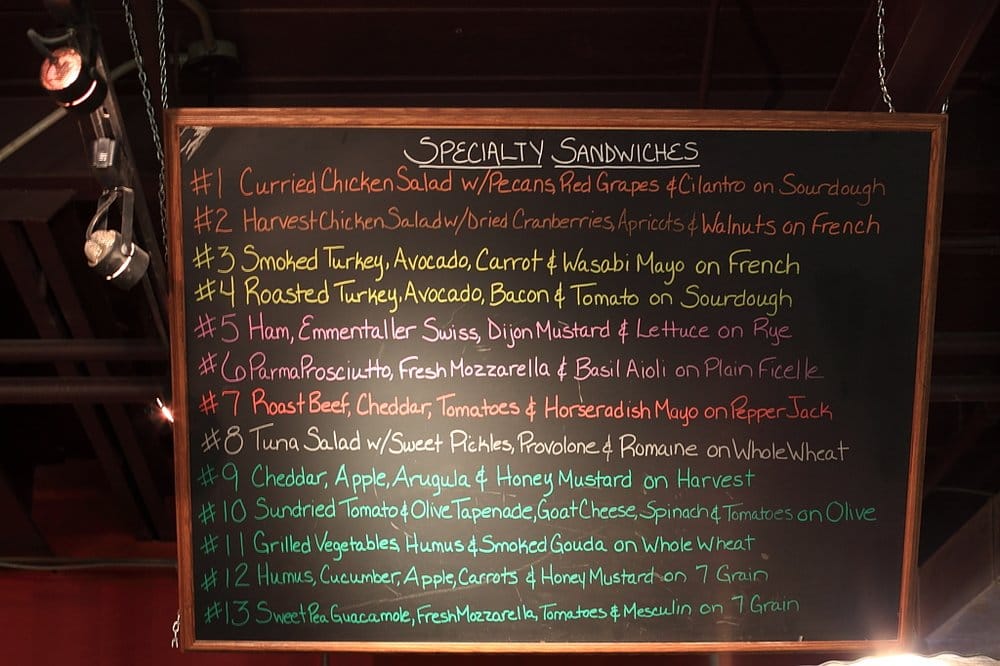 SPECIALTY SANDWICHES
#1 Curried Chicken Salad w/Pecans, Red Grapes & Cilantro on Sourdough
#2 Harvest Chicken Salad w/Dried Cranberries, Apricots & Walnuts on French
#3 Smoked Turkey, Avocado, Carrot & Wasabi Mayo on French
#4 Roasted Turkey, Avocado, Bacon & Tomato on Sourdough
#5 Ham, Emmentaller Swiss, Dijon Mustard & Lettuce on Rye
#6 Parma Prosciutto, Fresh Mozzarella & Basil Aioli on Plain Ficelle
#7 Roast Beef, Cheddar, Tomatoes & Horseradish Mayo on Pepper Jack
#8 Tuna Salad w/Sweet Pickles, Provolone & Romaine on Whole Wheat
#9 Cheddar, Apple, Arugula & Honey Mustard on Harvest
#10 Sundried Tomato & Olive Tapenade, Goat Cheese, Spinach & Tomatoes on Olive
#11 Grilled Vegetables, Humus & Smoked Gouda on Whole Wheat
#12 Humus, Cucumber, Apple, Carrots & Honey Mustard on 7 Grain
#13 Sweet Pea Guacamole, Fresh Mozzarella, Tomatoes & Mesculin on 7 Grain